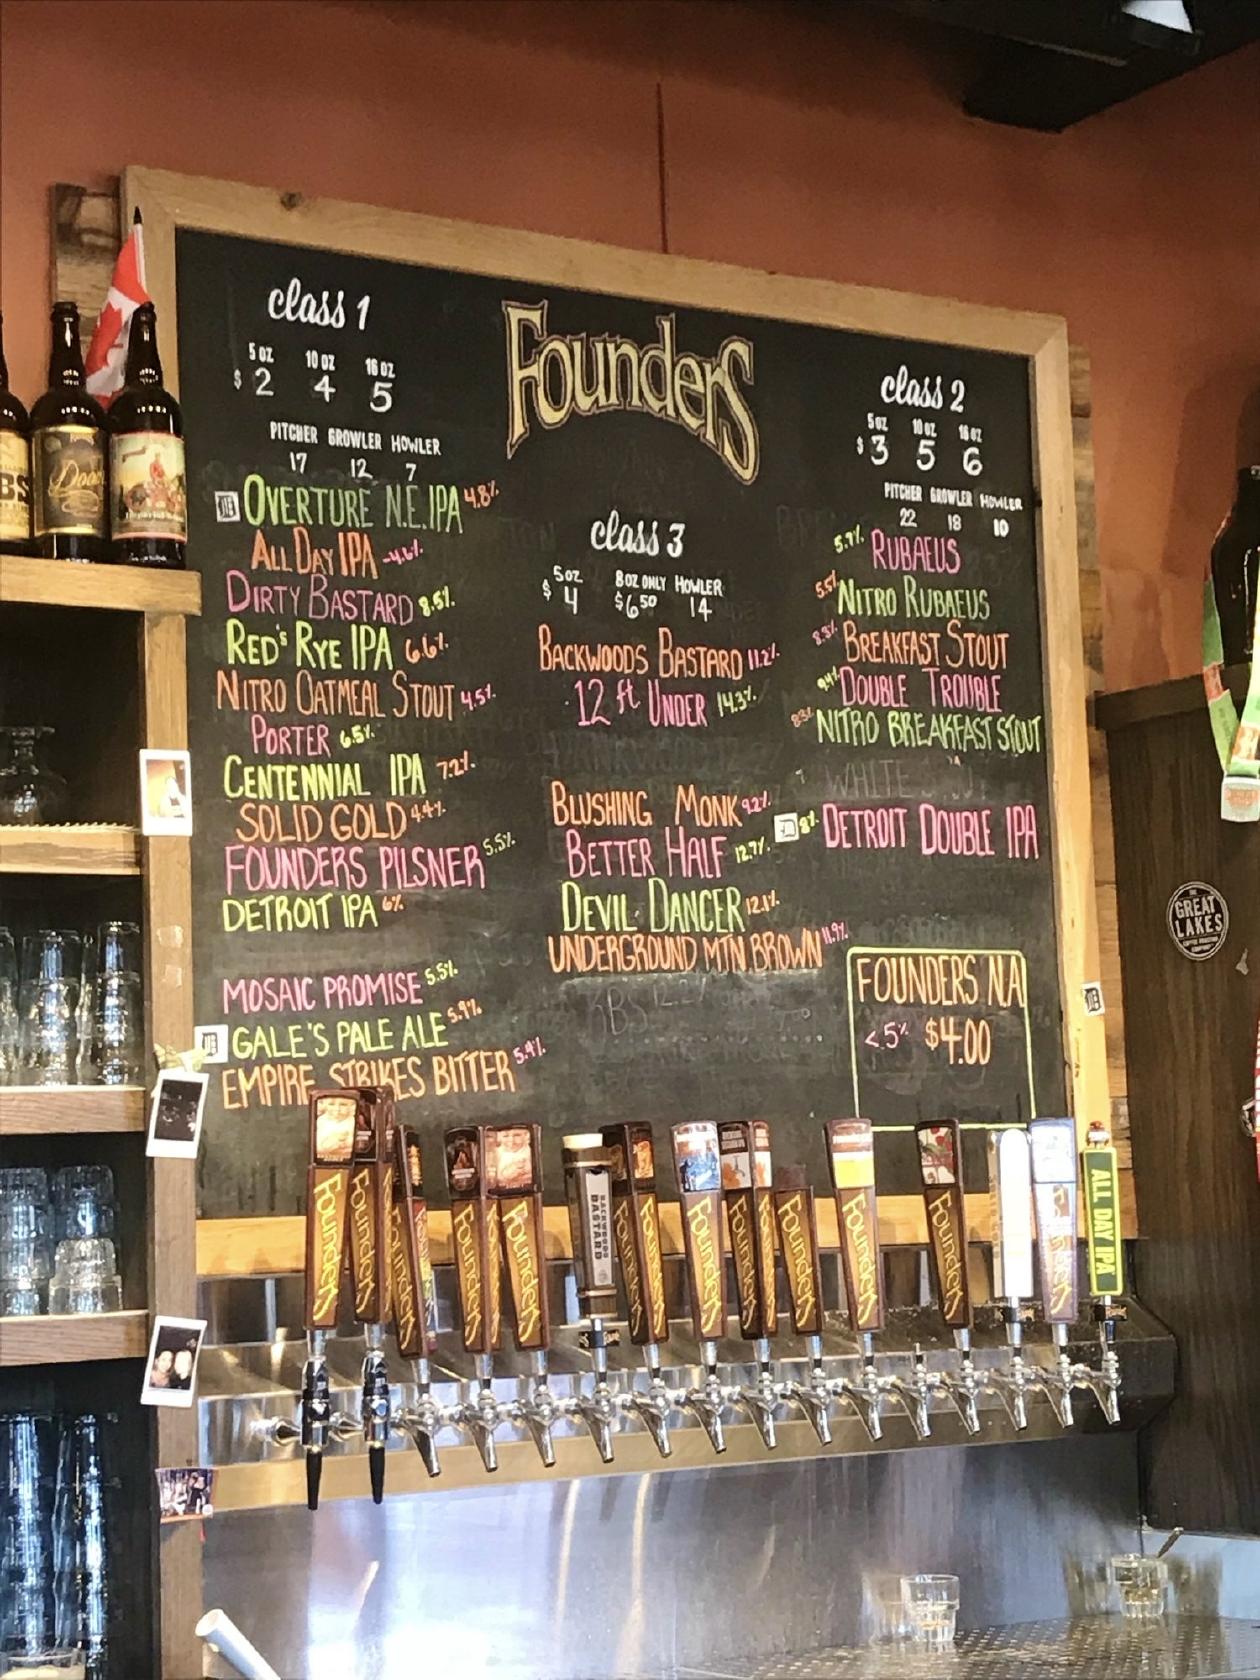 class 1
5 oz 10 oz 16 oz
$ 2 4 5
PITCHER GROWLER HOWLER
17 12 7
OVERTURE N.E. IPA 4.8%
ALL DAY IPA -4.6%
DIRTY BASTARD 8.5%
RED'S RYE IPA 6.6%
NITRO OATMEAL STOUT 4.5%
PORTER 6.5%
CENTENNIAL IPA 7.2%
SOLID GOLD 4.4%
FOUNDERS PILSNER 5.5%
DETROIT IPA 6%
MOSAIC PROMISE 5.5%
GALE'S PALE ALE 5.9%
EMPIRE STRIKES BITTER 5.9%
FOUNDERS
class 3
5 oz 8 OZ ONLY HOWLER
$ 4 $6.50 14
BACKWOODS BASTARD 11.2%
12 ft UNDER 14.3%
BLUSHING MONK 9.2%
BETTER HALF 12.7%
DEVIL DANCER 12.1%
UNDERGROUND MTN BROWN 11.9%
KBS 12.2%
class 2
5 oz 10 oz 16 oz
$ 3 5 6
PITCHER GROWLER HOWLER
22 18 10
5.7% RUBAEUS
5.5% NITRO RUBAEUS
8.3% BREAKFAST STOUT
9.4% DOUBLE TROUBLE
8.3% NITRO BREAKFAST STOUT
WHITE
8% DETROIT DOUBLE IPA
FOUNDERS N.A
<.5% $4.00
THE
GREAT
LAKES
COFFEE ROASTING
COMPANY
Founders
Founders
Founders
Founders
Founders
BACKWOODS
BASTARD
Founders
Founders
Founders
Founders
Founders
Founders
Founders
Founders
ALL DAY IPA